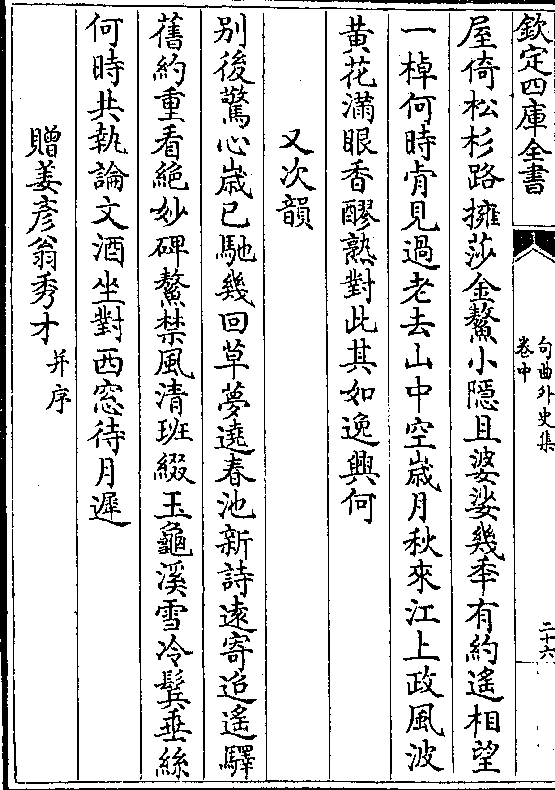 欽定四庫全書
句曲外史集
卷中
二十六
屋倚松杉路擁莎金鰲小隱且婆娑幾年有約遙相望
一棹何時肯見過老去山中空歲月秋來江上政風波
黄花滿眼香醪熟對此其如逸興何
又次韻
別後驚心歲已馳幾回草夢遶春池新詩遠寄迢遙驛
舊約重看絶妙碑鰲禁風清班綴玉龜溪雪冷鬂垂絲
何時共執論文酒坐對西窓待月遲
贈姜彥翁秀才并序